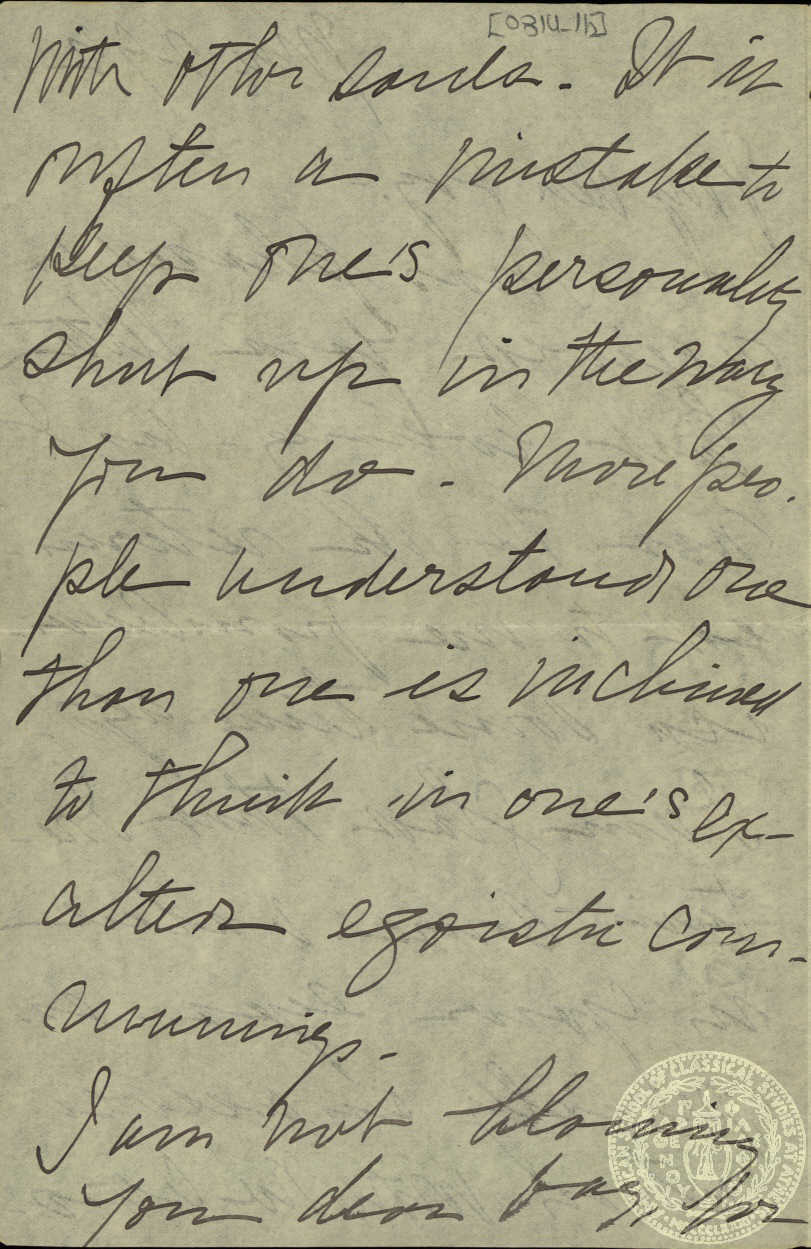 with other souls. It is
often a mistake to
keep one's personality
shut up in the way
you do. More peo-
ple understand one
than one is inclined
to think in one's ex-
alted egoistic com-
munings.
I am not blaming
you dear boy, for